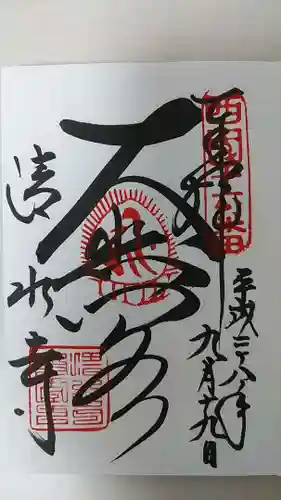 奉拝
西国十六番
平成二八年
九月十九日
大悲閣
清水寺